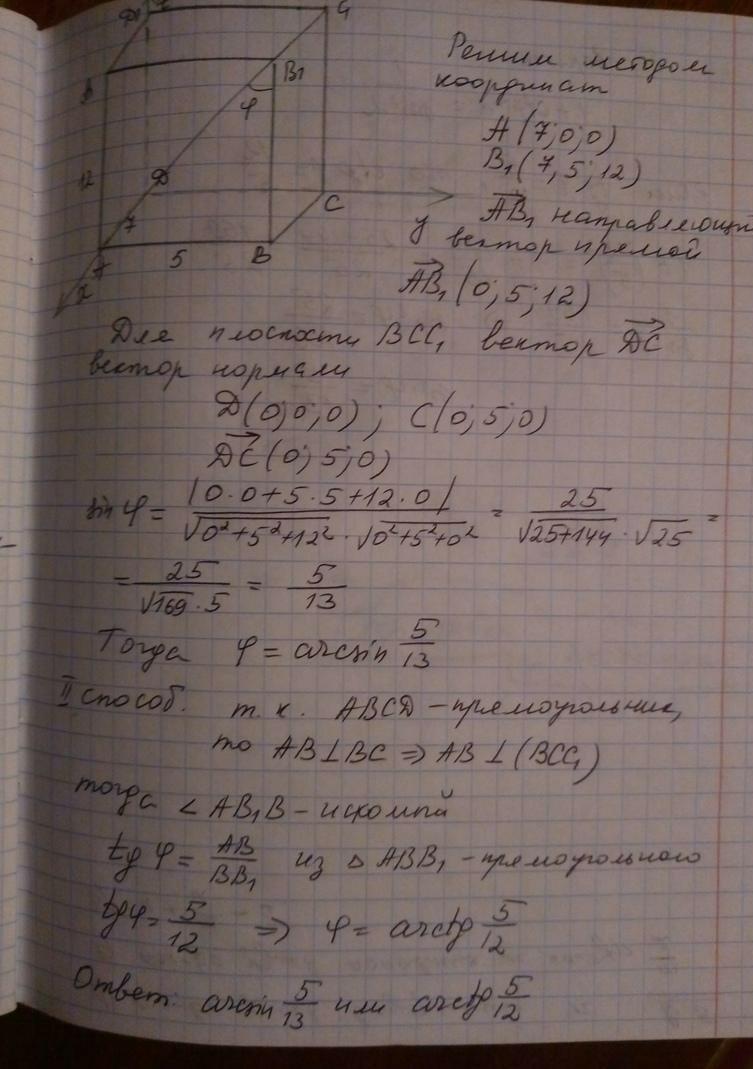 D1
C1
A
B1
φ
Решим методом
координат
A(7;0;0)
B1(7,5;12)
12
D
C
7
y
AB1 направляющий
вектор прямой
A
5
B
x
AB1(0;5;12)
Для плоскости BCC1 вектор DC
вектор нормали
D(0;0;0); C(0;5;0)
DC(0;5;0)
sin φ = |0·0+5·5+12·0| / √0²+5²+12² · √0²+5²+0² = 25 / √25+144 · √25 =
= 25 / √169·5 = 5/13
Тогда φ = arcsin 5/13
II способ. т.к. ABCD – прямоугольник,
то AB⊥BC ⇒ AB⊥(BCC1)
тогда ∠AB1B – искомый
tg φ = AB/BB1 из △ABB1 – прямоугольного
tgφ = 5/12 ⇒ φ = arctg 5/12
Ответ: arcsin 5/13 или arctg 5/12